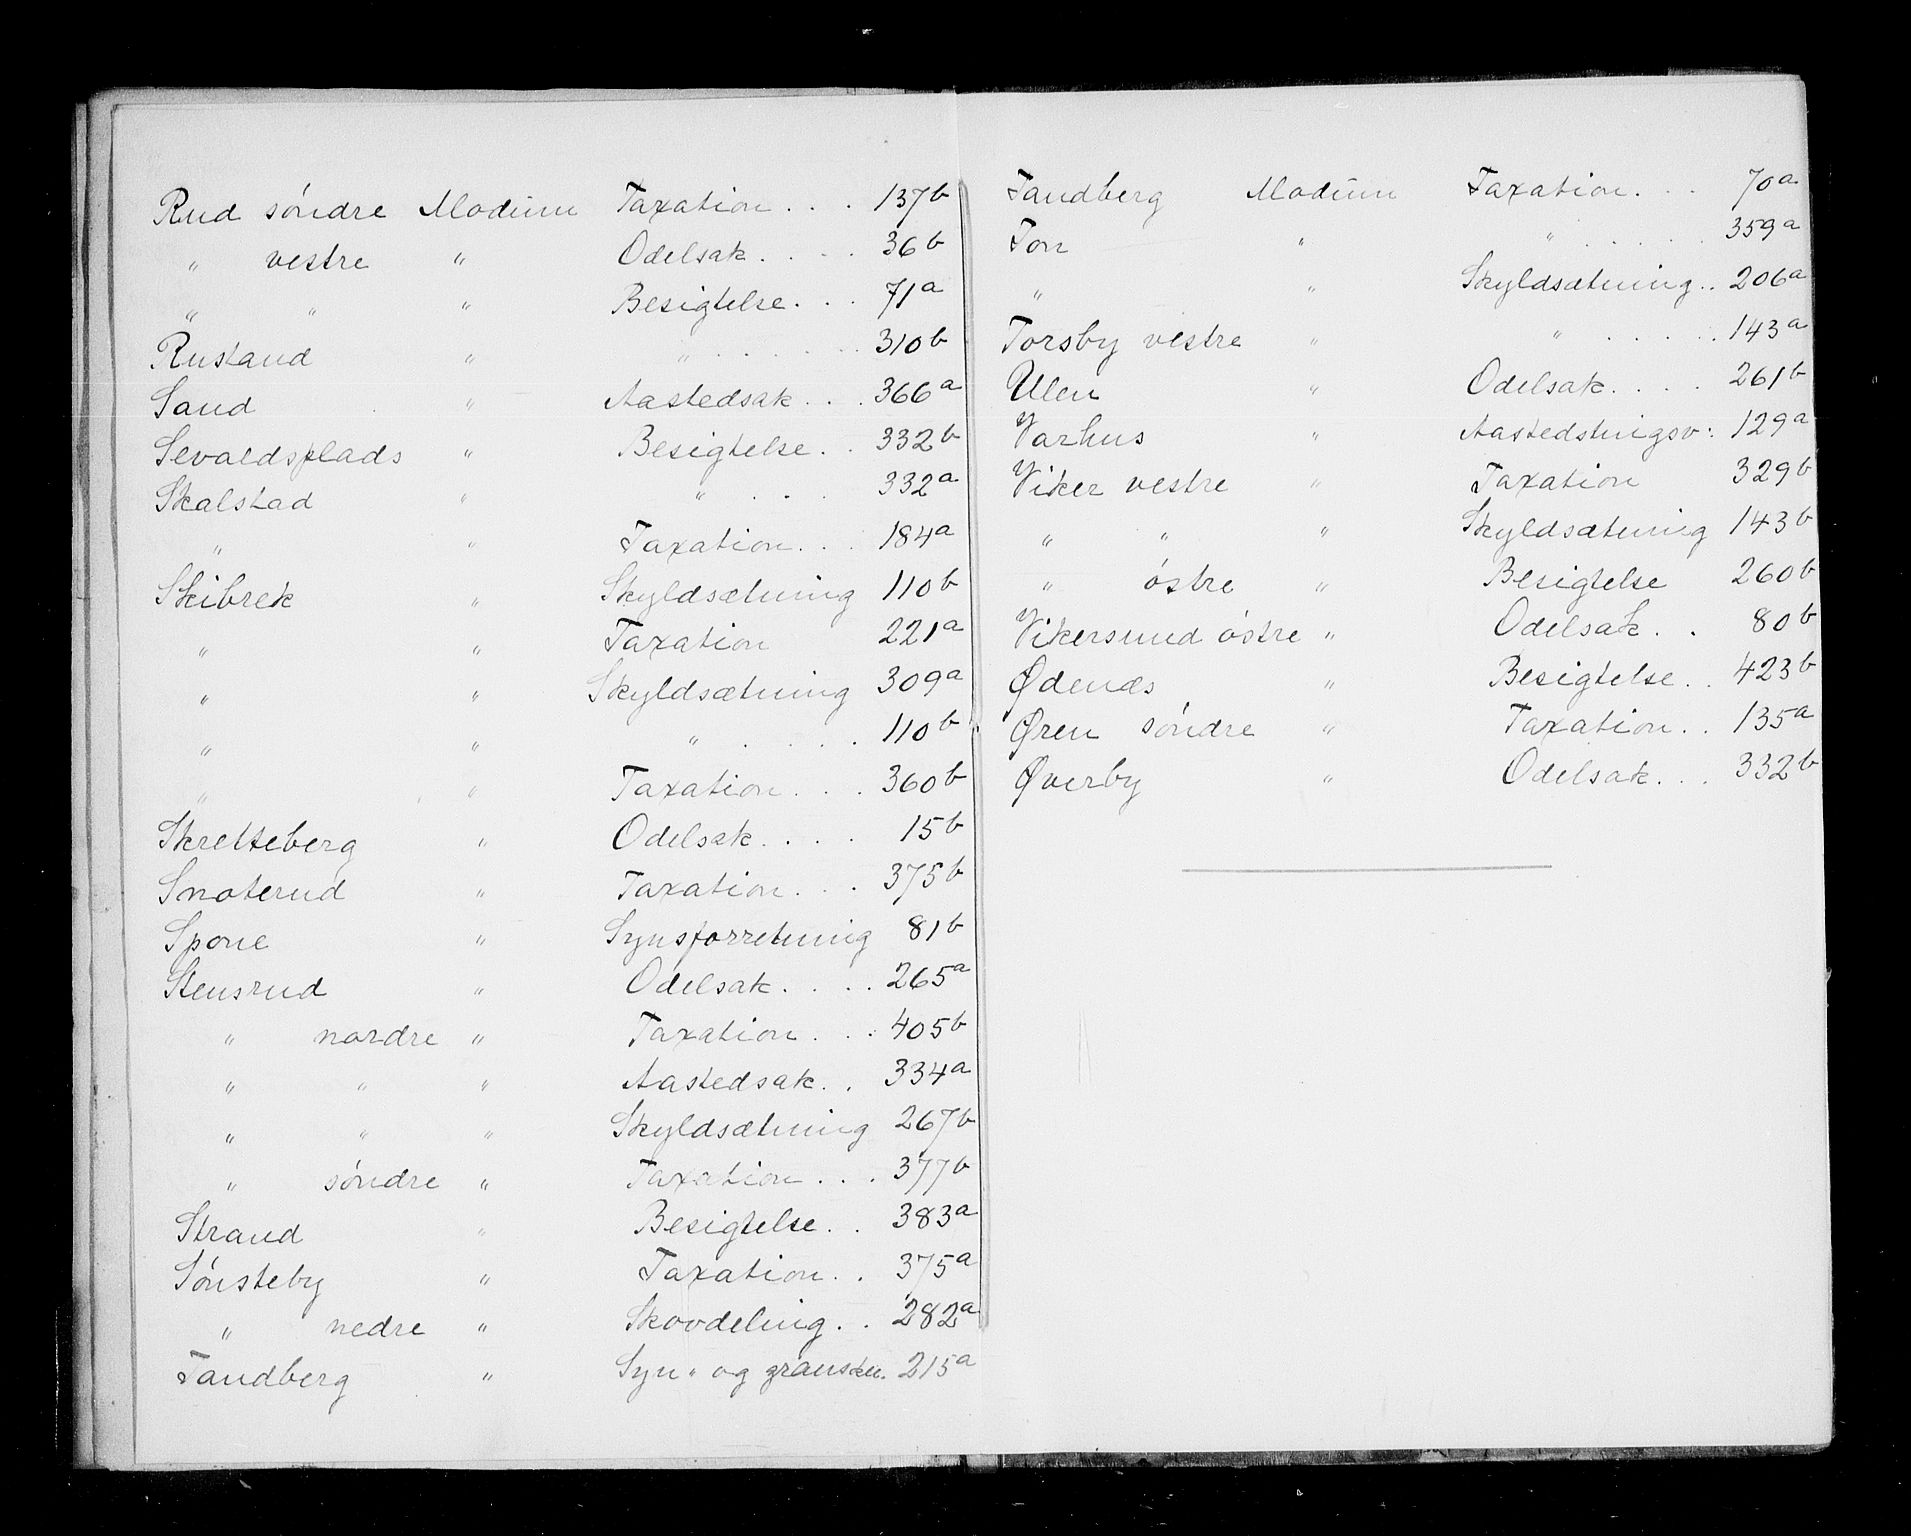 Rud søndre Modum Taxation . . . 137b
" vestre " Odelsak . . . . 36b
" " " Besigtelse . . . 71a
Rustand " " . . . . . . 310b
Sand " Aastedsak . . . 366a
Sevaldsplads " Besigtelse . . 332b
Skalstad " " . . . 332a
" " Taxation . . . 184a
Skibrek " Skyldsætning 110b
" " Taxation 221a
" " Skyldsætning 309a
" " " . . . . 110b
" " Taxation . . . 360b
Skretteberg " Odelsak . . . . 15b
Snoterud " Taxation . . . 375b
Spone " Synsforretning 81b
Stensrud " Odelsak . . . . 265a
" nordre " Taxation . . . 405b
" " " Aastedsak . . 334a
" " " Skyldsætning 267b
" søndre " Taxation . . . 377b
Strand " Besigtelse . . 383a
Sønsteby " Taxation . . 375a
" nedre " Skovdeling . . 282a
Tandberg " Syn- og gransku. 215a
Tandberg Modum Taxation . . . 70a
Ton " " . . . . . 359a
" " Skyldsætning . . 206a
Torsby vestre " " . . . . . 143a
Ulen " Odelsak . . . . 261b
Varhus " Aastedstingsv: 129a
Viker vestre " Taxation 329b
" " " Skyldsætning 143b
" østre " Besigtelse 260b
Vikersund østre " Odelsak . . 80b
Ødenæs " Besigtelse . . 423b
Øren søndre " Taxation . . 135a
Øverby " Odelsak . . . 332b